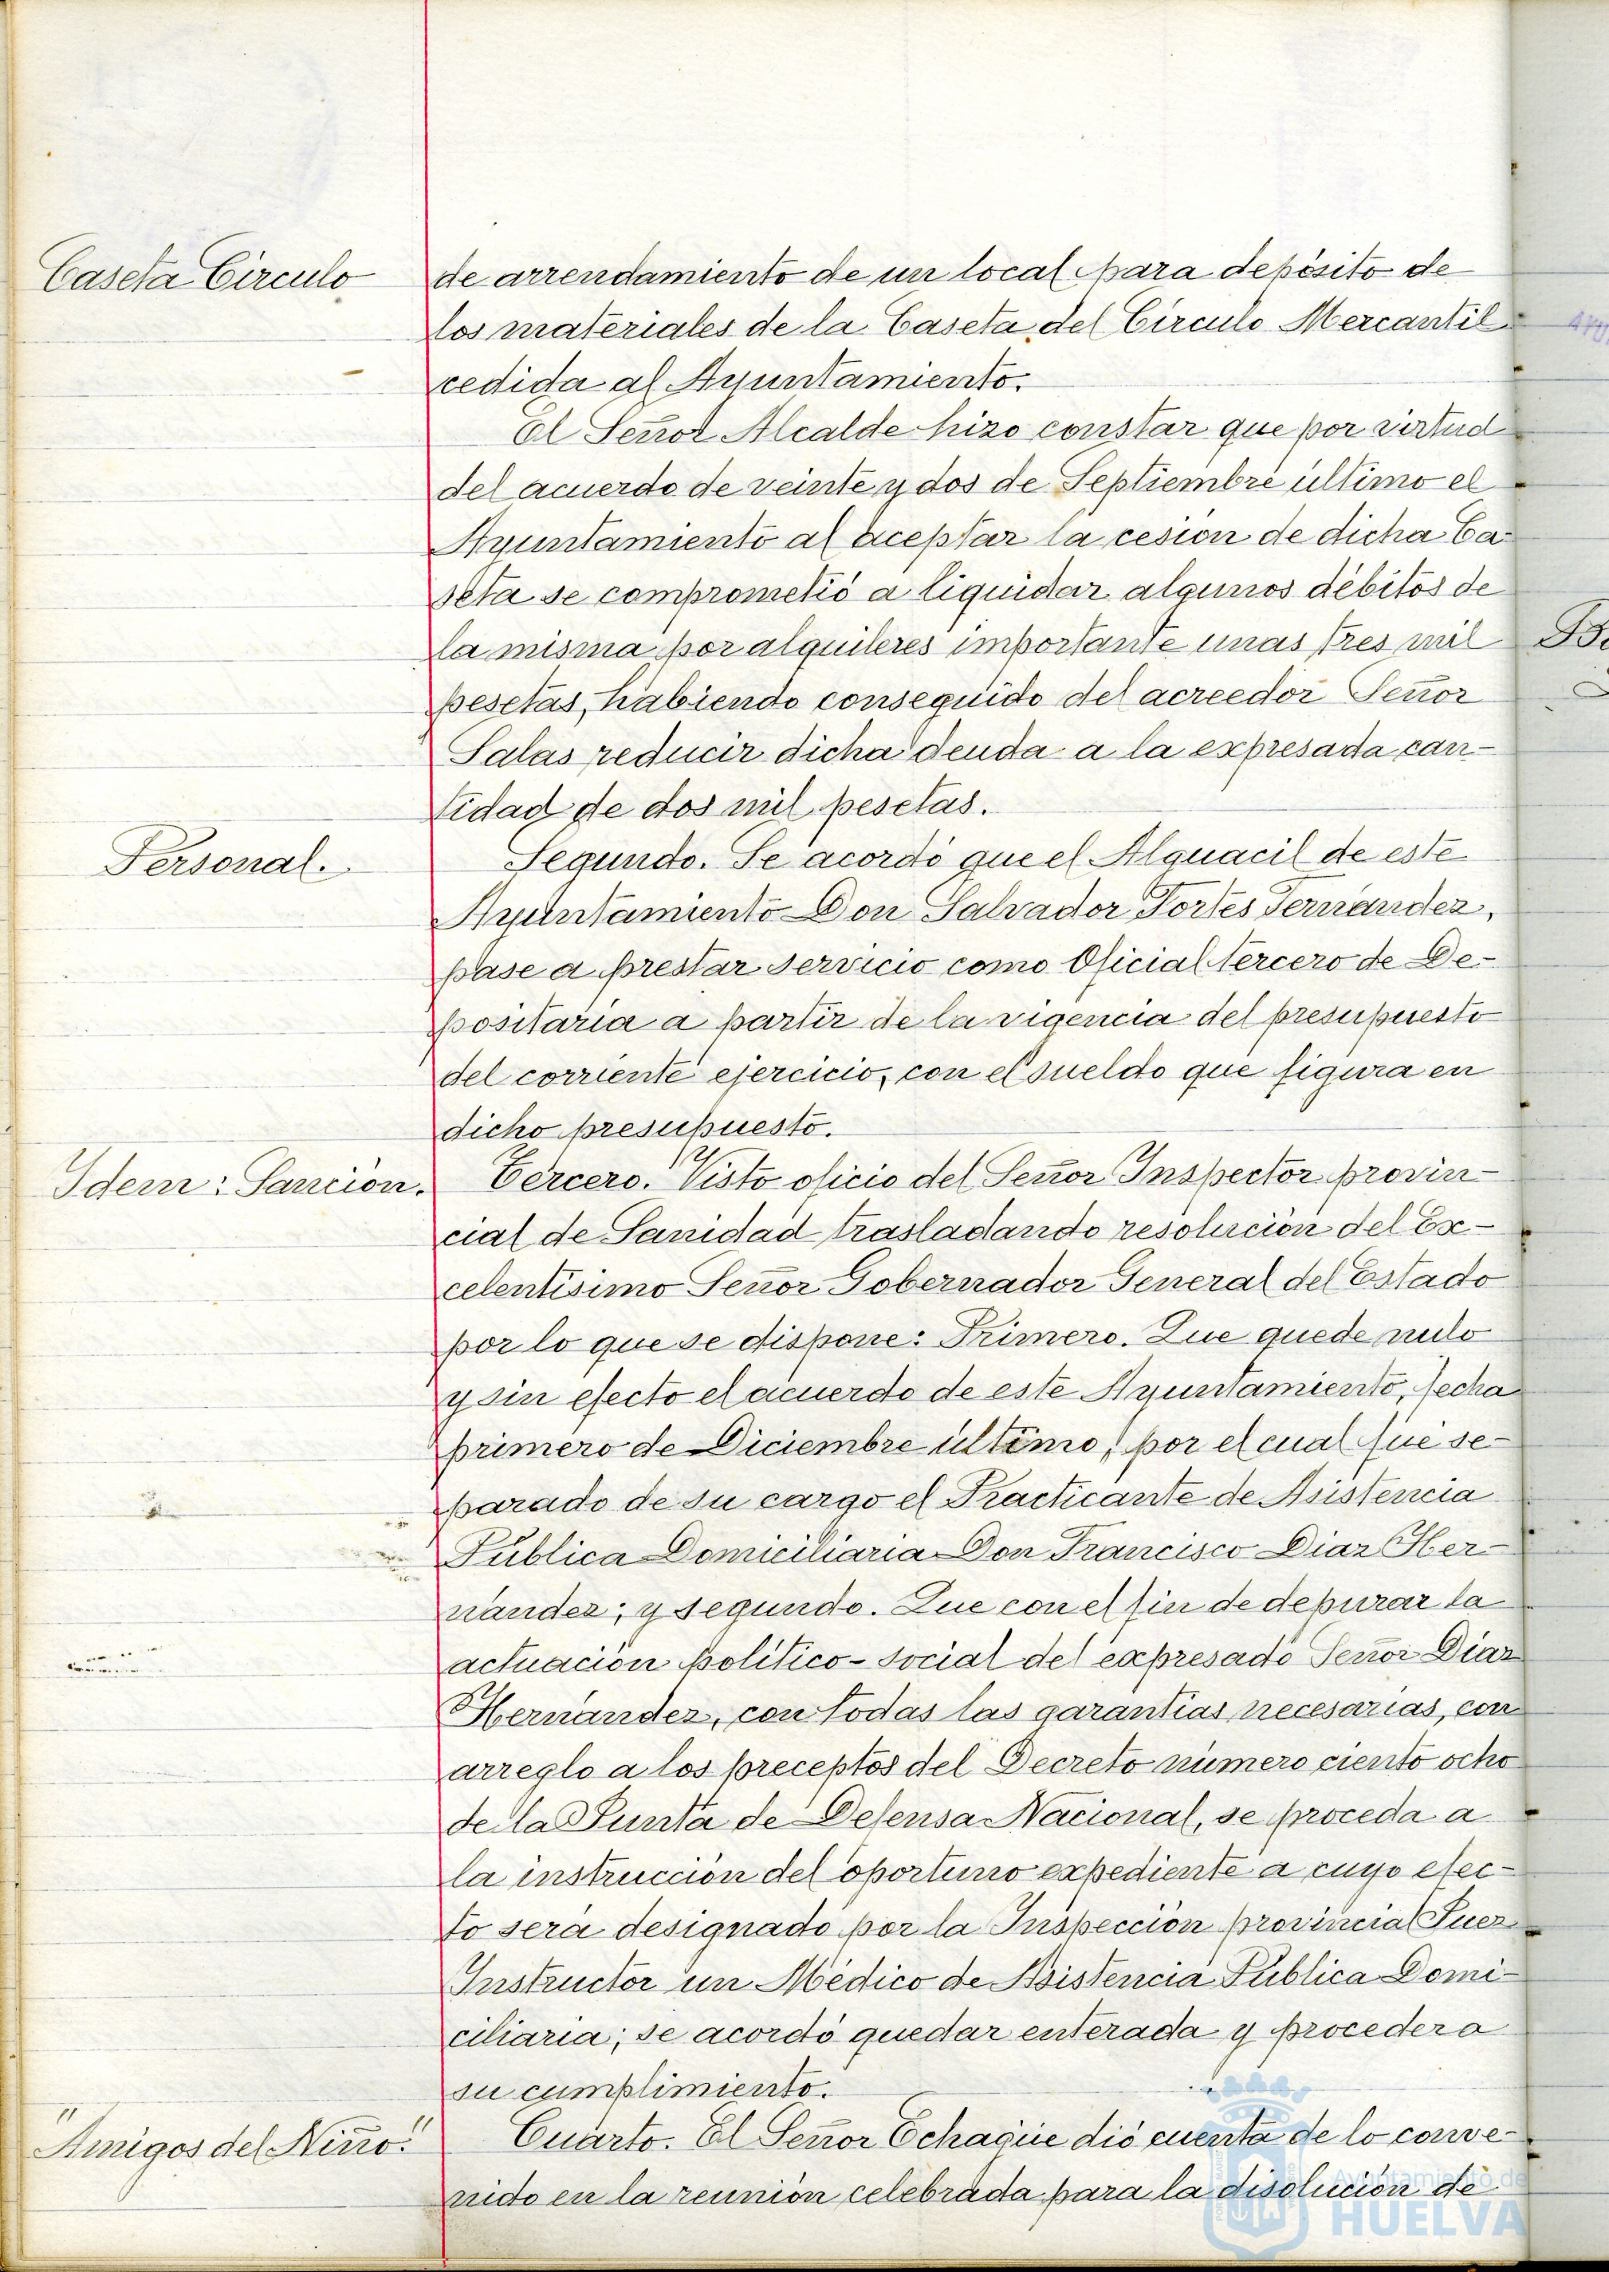 Caseta Circulo
de arrendamiento de un local para depósito de
los materiales de la Caseta del Círculo Mercantil
cedida al Ayuntamiento.
El Señor Alcalde hizo constar que por virtud
del acuerdo de veinte y dos de Septiembre último el
Ayuntamiento al aceptar la cesión de dicha Ca-
seta se comprometió a liquidar algunos débitos de
la misma por alquileres importante unas tres mil
pesetas, habiendo conseguido del acreedor Señor
Salas reducir dicha deuda a la expresada can-
tidad de dos mil pesetas.
Personal.
Segundo. Se acordó que el Alguacil de este
Ayuntamiento Don Salvador Fortes Fernández,
pase a prestar servicio como Oficial tercero de De-
positaría a partir de la vigencia del presupuesto
del corriente ejercicio, con el sueldo que figura en
dicho presupuesto.
Idem: Sanción.
Tercero. Visto oficio del Señor Inspector provin-
cial de Sanidad trasladando resolución del Ex-
celentísimo Señor Gobernador General del Estado
por lo que se dispone: Primero. Que quede nulo
y sin efecto el acuerdo de este Ayuntamiento, fecha
primero de Diciembre último, por el cual fué se-
parado de su cargo el Practicante de Asistencia
Pública Domiciliaria Don Francisco Díaz Her-
nández; y segundo. Que con el fin de depurar la
actuación político-social del expresado Señor Díaz
Hernández, con todas las garantías necesarias, con
arreglo a los preceptos del Decreto número ciento ocho
de la Junta de Defensa Nacional, se proceda a
la instrucción del oportuno expediente a cuyo efec-
to será designado por la Inspección provincial Juez
Instructor un Médico de Asistencia Pública Domi-
ciliaria; se acordó quedar enterada y proceder a
su cumplimiento.
"Amigos del Niño."
Cuarto. El Señor Echagüe dió cuenta de lo conve-
nido en la reunión celebrada para la disolución de
Ayuntamiento de
HUELVA